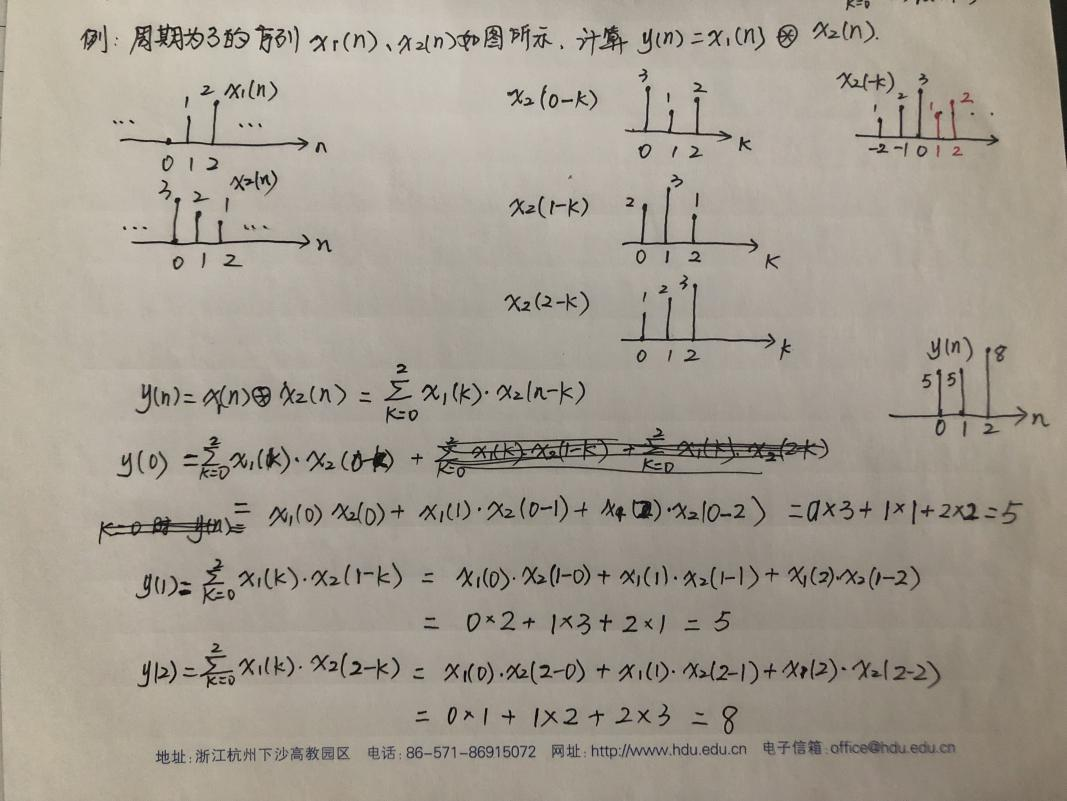 例: 周期为3的序列 x₁(n)、x₂(n)如图所示. 计算 y(n)=x₁(n) ⊛ x₂(n).
1 2 x₁(n)
... ... n
0 1 2
3 2 1 x₂(n)
... ... n
0 1 2
x₂(0-k) 3 1 2
0 1 2 k
x₂(-k) 1 2 3 1 2 ..
-2 -1 0 1 2
x₂(1-k) 2 3 1
0 1 2 k
x₂(2-k) 1 2 3
0 1 2 k
y(n) 5 5 8
0 1 2 n
y(n)= x₁(n) ⊛ x₂(n) = ∑_{k=0}^{2} x₁(k)·x₂(n-k)
y(0) = ∑_{k=0}^{2} x₁(k)·x₂(0-k) + ∑_{k=0}^{2} x₁(k)·x₂(1-k) + ∑_{k=0}^{2} x₁(k)·x₂(2-k)
k=0时 y(n)= = x₁(0) x₂(0) + x₁(1)·x₂(0-1) + x₁(2)·x₂(0-2) = 0×3 + 1×1 + 2×2 = 5
y(1) = ∑_{k=0}^{2} x₁(k)·x₂(1-k) = x₁(0)·x₂(1-0) + x₁(1)·x₂(1-1) + x₁(2)·x₂(1-2)
= 0×2 + 1×3 + 2×1 = 5
y(2) = ∑_{k=0}^{2} x₁(k)·x₂(2-k) = x₁(0)·x₂(2-0) + x₁(1)·x₂(2-1) + x₁(2)·x₂(2-2)
= 0×1 + 1×2 + 2×3 = 8
地址:浙江杭州下沙高教园区 电话:86-571-86915072 网址:http://www.hdu.edu.cn 电子信箱:office@hdu.edu.cn